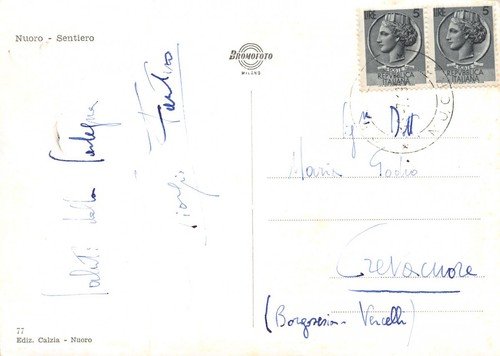 Nuoro - Sentiero
BROMOFOTO
MILANO
LIRE 5
REPUBBLICA
ITALIANA
LIRE 5
REPUBBLICA
ITALIANA
Saluti dalla Sardegna
Maria
Crevacuore
(Borgosesia - Vercelli)
77
Ediz. Calzia - Nuoro